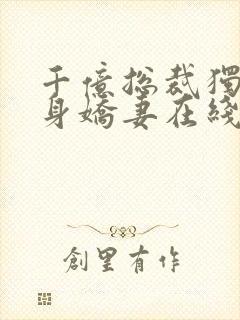 千億总裁獨
身嬌妻在綫
創里有作